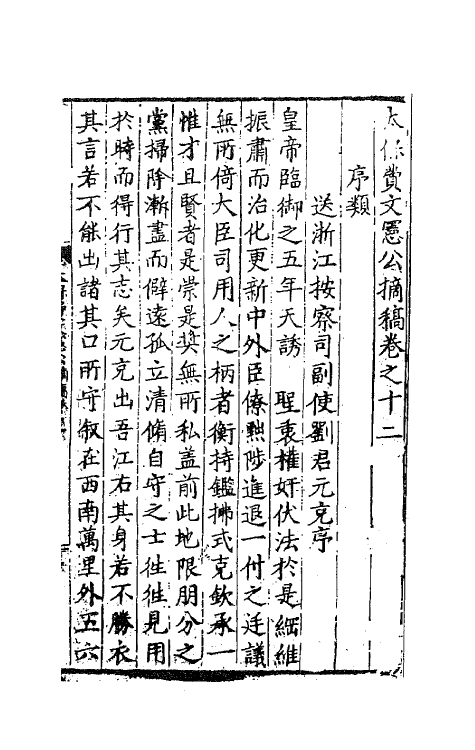 太保費文憲公摘稿卷之十二
序類
送浙江按察司副使劉君元充序
皇帝臨御之五年天誘 聖衷權奸伏法於是綱維
振肅而治化更新中外臣僚黜陟進退一付之廷議
無所倚大臣司用人之柄者衡持鑑拂式克欽承一
惟才且賢者是崇是奬無所私盖前此地限朋分之
黨掃除漸盡而僻遠孤立清脩自守之士徃徃見用
於時而得行其志矣元充出吾江右其身若不勝衣
其言若不能出諸其口所守敍在西南萬里外五六